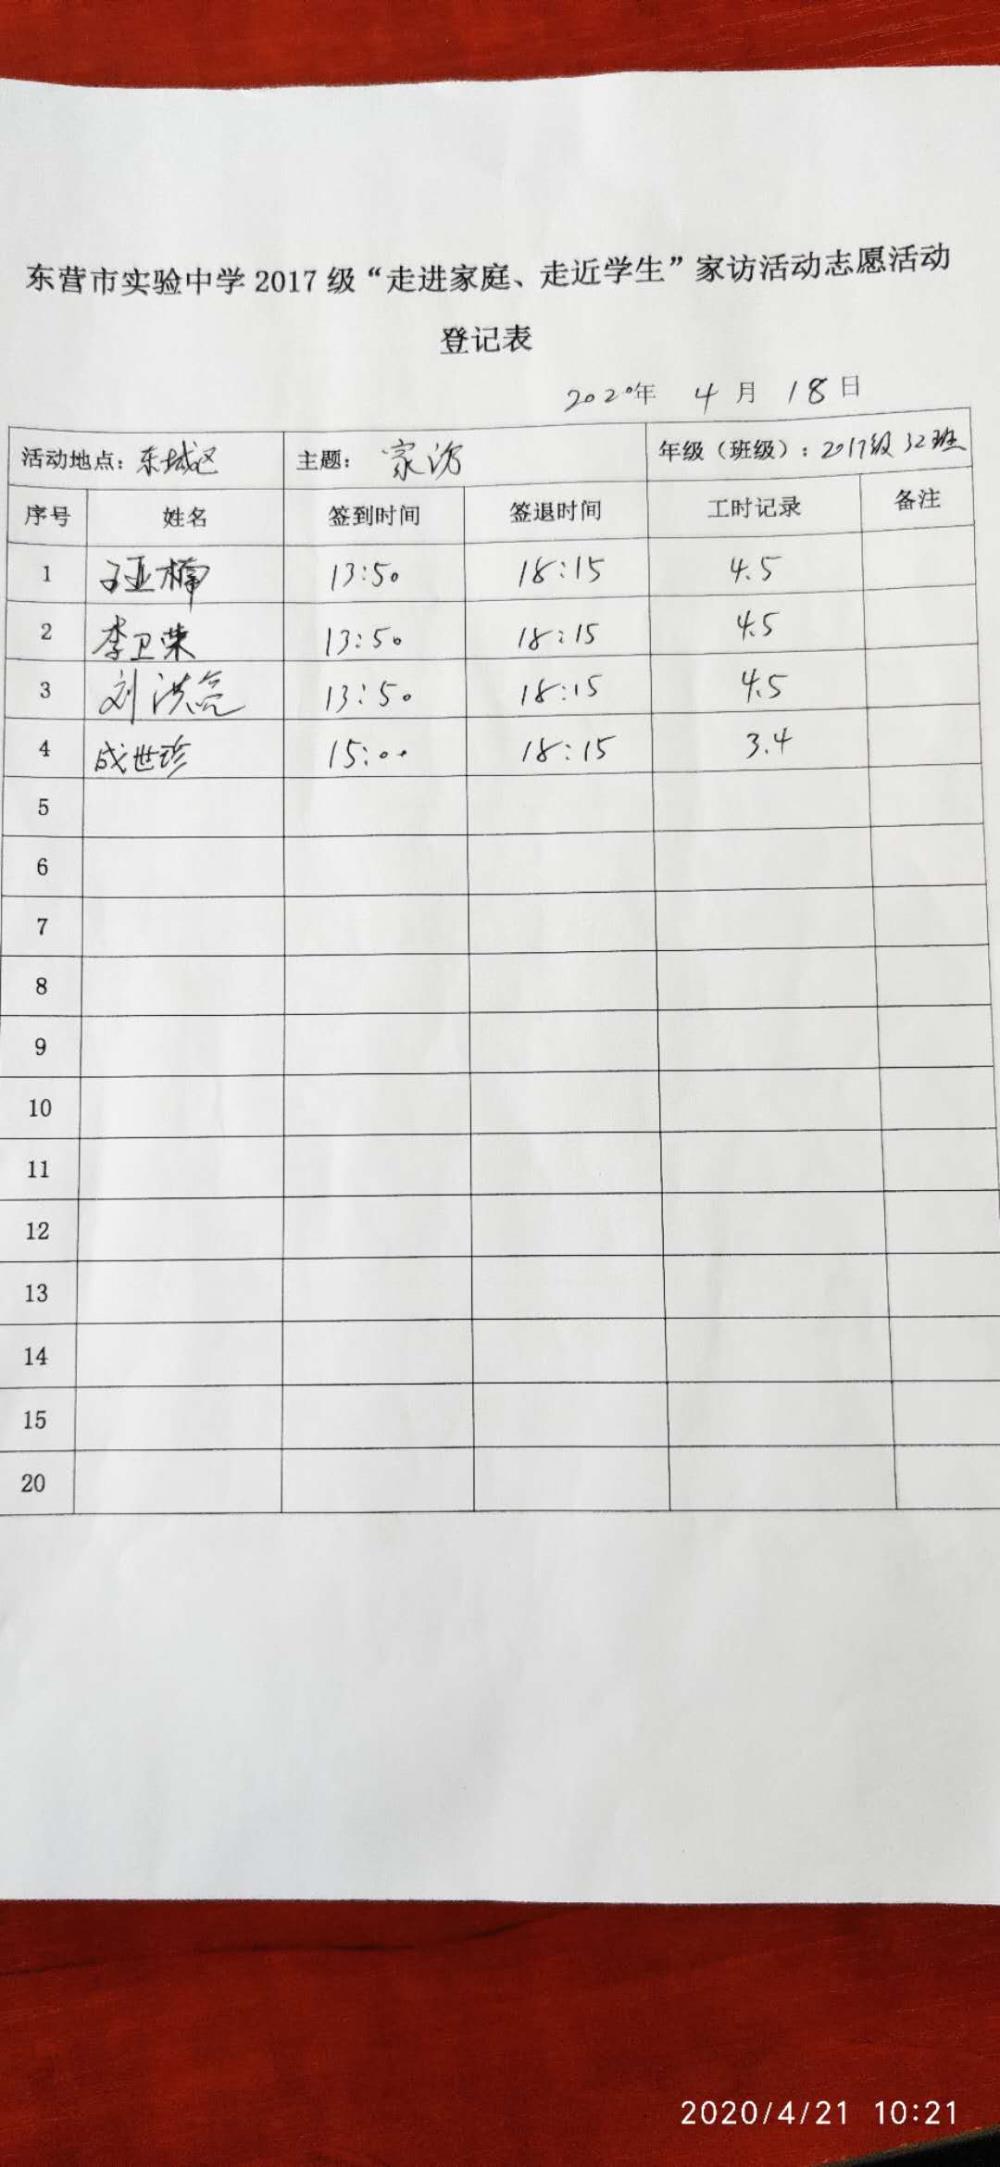 东营市实验中学 2017 级“走进家庭、走近学生”家访活动志愿活动
登记表
2020年 4 月 18 日
活动地点：东城区 主题： 家访 年级（班级）：2017级 32班
序号 姓名 签到时间 签退时间 工时记录 备注
1 亚楠 13:50 18:15 4.5
2 李卫荣 13:50 18:15 4.5
3 刘洪亮 13:50 18:15 4.5
4 成世珍 15:00 18:15 3.4
5
6
7
8
9
10
11
12
13
14
15
20
2020/4/21 10:21